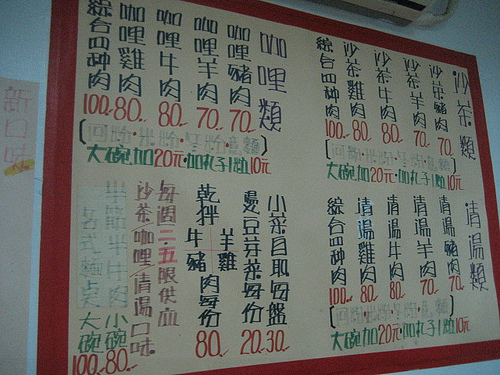 沙茶類
沙茶豬肉 70.
沙茶羊肉 70.
沙茶牛肉 80.
沙茶雞肉 80.
綜合四種肉 100.
大碗加20元·加丸子1粒10元
咖哩類
咖哩豬肉 70.
咖哩羊肉 70.
咖哩牛肉 80.
咖哩雞肉 80.
綜合四種肉 100.
大碗加20元·加丸子1粒10元
清湯類
清湯豬肉 70.
清湯羊肉 70.
清湯牛肉 80.
清湯雞肉 80.
綜合四種肉 100.
大碗加20元·加丸子1粒10元
小菜自取每盤 30.
豆芽菜每份 20.
乾拌 羊雞牛豬 肉每份 80.
每週二五限供血
沙茶咖哩清湯口味.
半筋半牛肉 小碗 80.
各式麵 大碗 100.
新口味